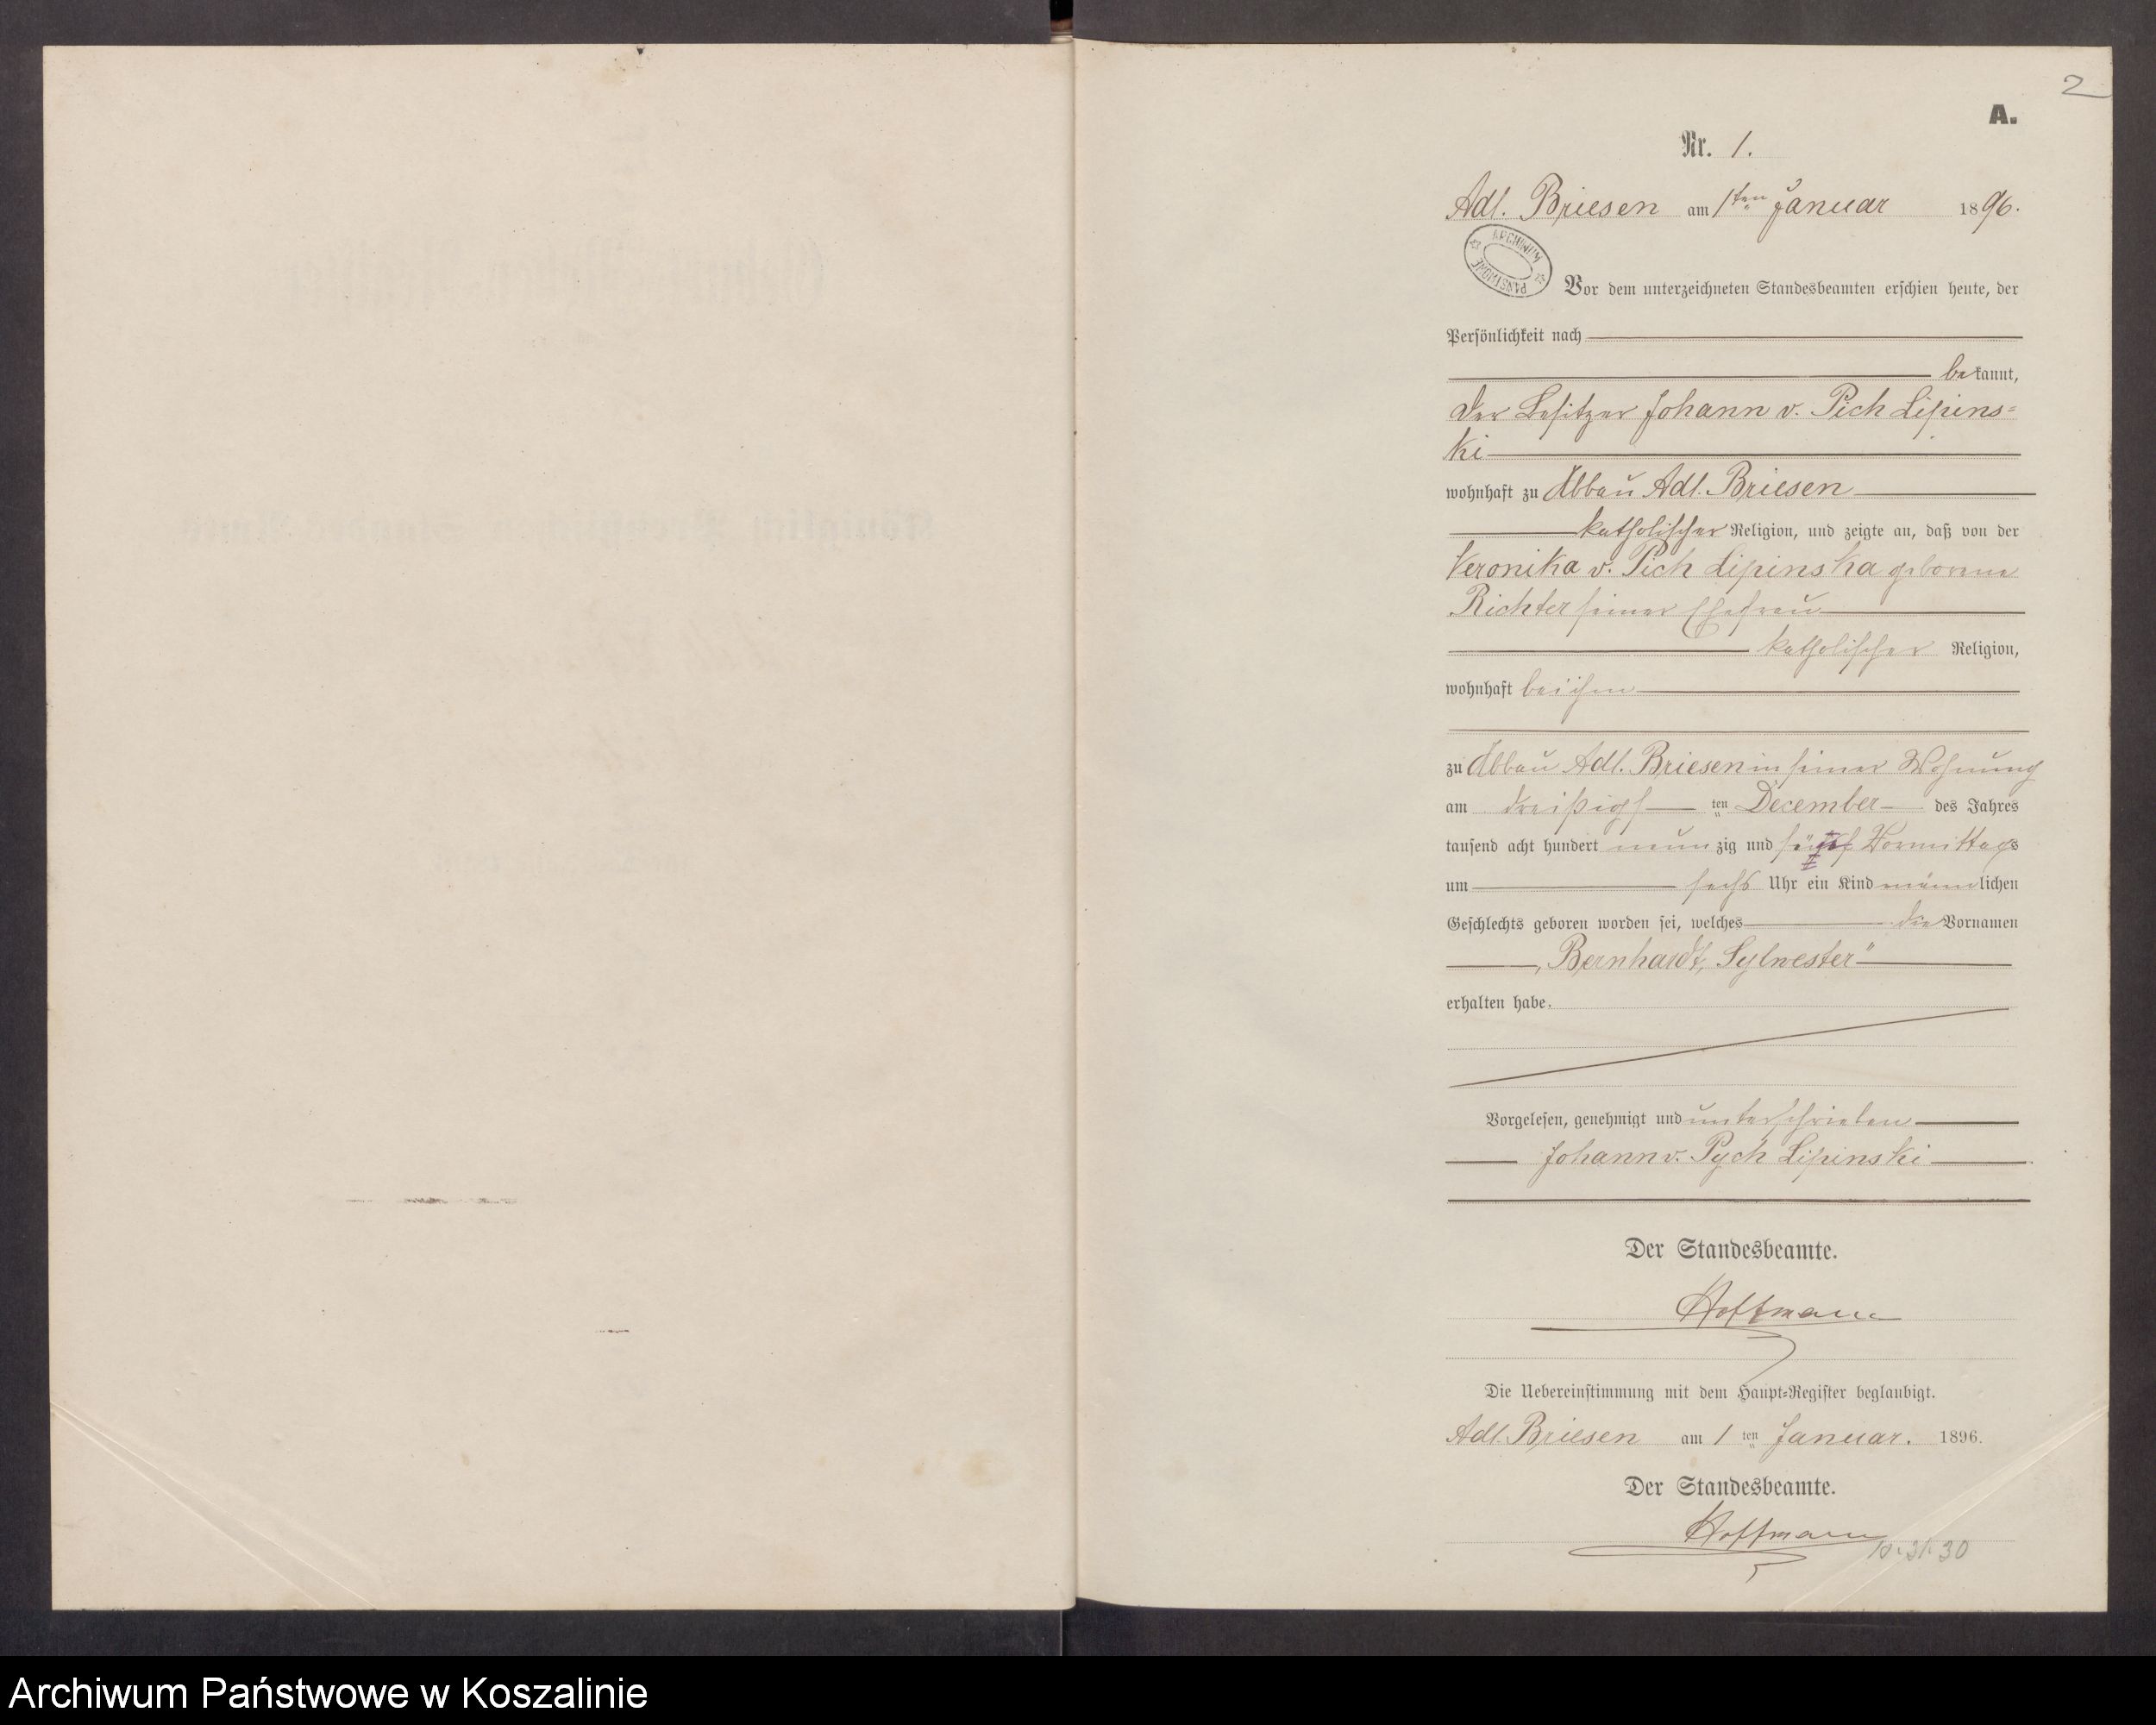 2
A.
Nr. 1.
Adl. Briesen am 1ten Januar 1896.
ARCHIWUM PAŃSTWOWE
Vor dem unterzeichneten Standesbeamten erschien heute, der
Persönlichkeit nach
bekannt,
der Besitzer Johann v. Pich Lipins=
ki
wohnhaft zu Abbau Adl. Briesen
katholischer Religion, und zeigte an, daß von der
Veronika v. Pich Lipinska geborene
Richter seiner Ehefrau
katholischer Religion,
wohnhaft bei ihm
zu Abbau Adl. Briesen in seiner Wohnung
am dreißigs ten December des Jahres
tausend acht hundert neun zig und fünf Vormittags
um sechs Uhr ein Kind männlichen
Geschlechts geboren worden sei, welches die Vornamen
„Bernhardt, Sylwester"
erhalten habe.
Vorgelesen, genehmigt und unterschrieben
Johann v. Pych Lipinski
Der Standesbeamte.
Hoffmann
Die Uebereinstimmung mit dem Haupt=Register beglaubigt.
Adl. Briesen am 1 ten Januar. 1896.
Der Standesbeamte.
Hoffmann
31.30
Archiwum Państwowe w Koszalinie